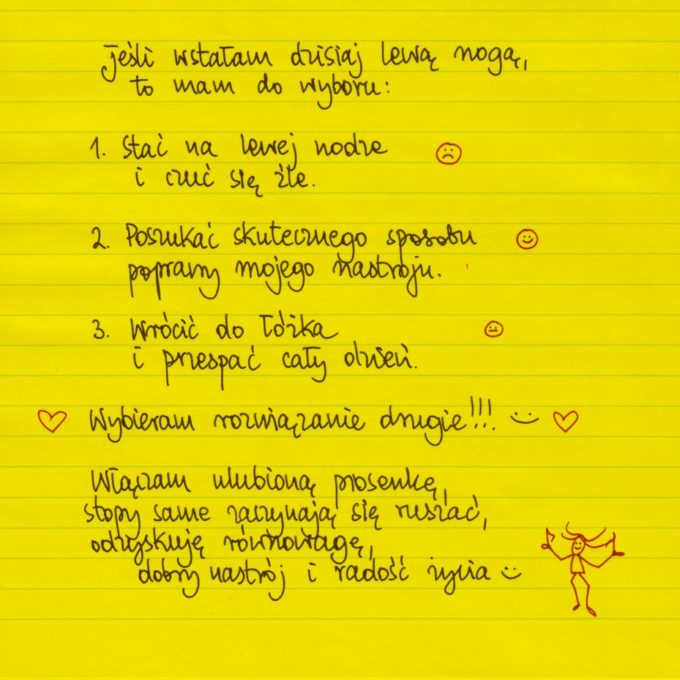 Jeśli wstałam dzisiaj lewą nogą,
to mam do wyboru:
1. Stać na lewej nodze
i czuć się źle.
2. Poszukać skutecznego sposobu
poprawy mojego nastroju.
3. Wrócić do łóżka
i przespać cały dzień.
Wybieram rozwiązanie drugie!!!
Włączam ulubioną piosenkę,
stopy same zaczynają się ruszać,
odzyskuję równowagę,
dobry nastrój i radość życia